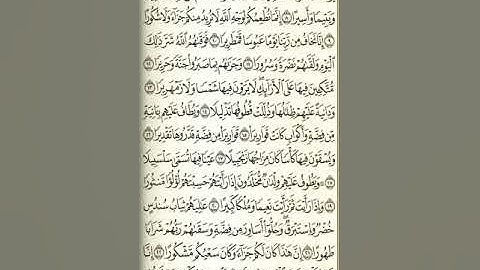 وَيَتِيمًا وَأَسِيرًا ۝٨ إِنَّمَا نُطْعِمُكُمْ لِوَجْهِ ٱللَّهِ لَا نُرِيدُ مِنكُمْ جَزَآءً وَلَا شُكُورًا
۝٩ إِنَّا نَخَافُ مِن رَّبِّنَا يَوْمًا عَبُوسًا قَمْطَرِيرًا ۝١٠ فَوَقَىٰهُمُ ٱللَّهُ شَرَّ ذَٰلِكَ
ٱلْيَوْمِ وَلَقَّىٰهُمْ نَضْرَةً وَسُرُورًا ۝١١ وَجَزَىٰهُم بِمَا صَبَرُوا۟ جَنَّةً وَحَرِيرًا ۝١٢
مُّتَّكِـِٔينَ فِيهَا عَلَى ٱلْأَرَآئِكِ ۖ لَا يَرَوْنَ فِيهَا شَمْسًا وَلَا زَمْهَرِيرًا ۝١٣
وَدَانِيَةً عَلَيْهِمْ ظِلَٰلُهَا وَذُلِّلَتْ قُطُوفُهَا تَذْلِيلًا ۝١٤ وَيُطَافُ عَلَيْهِم بِـَٔانِيَةٍ
مِّن فِضَّةٍ وَأَكْوَابٍ كَانَتْ قَوَارِيرَا۠ ۝١٥ قَوَارِيرَا۟ مِن فِضَّةٍ قَدَّرُوهَا تَقْدِيرًا ۝١٦
وَيُسْقَوْنَ فِيهَا كَأْسًا كَانَ مِزَاجُهَا زَنجَبِيلًا ۝١٧ عَيْنًا فِيهَا تُسَمَّىٰ سَلْسَبِيلًا
۝١٨ وَيَطُوفُ عَلَيْهِمْ وِلْدَٰنٌ مُّخَلَّدُونَ إِذَا رَأَيْتَهُمْ حَسِبْتَهُمْ لُؤْلُؤًا مَّنثُورًا
۝١٩ وَإِذَا رَأَيْتَ ثَمَّ رَأَيْتَ نَعِيمًا وَمُلْكًا كَبِيرًا ۝٢٠ عَٰلِيَهُمْ ثِيَابُ سُندُسٍ
خُضْرٌ وَإِسْتَبْرَقٌ ۖ وَحُلُّوٓا۟ أَسَاوِرَ مِن فِضَّةٍ وَسَقَىٰهُمْ رَبُّهُمْ شَرَابًا
طَهُورًا ۝٢١ إِنَّ هَٰذَا كَانَ لَكُمْ جَزَآءً وَكَانَ سَعْيُكُم مَّشْكُورًا ۝٢٢ إِنَّا